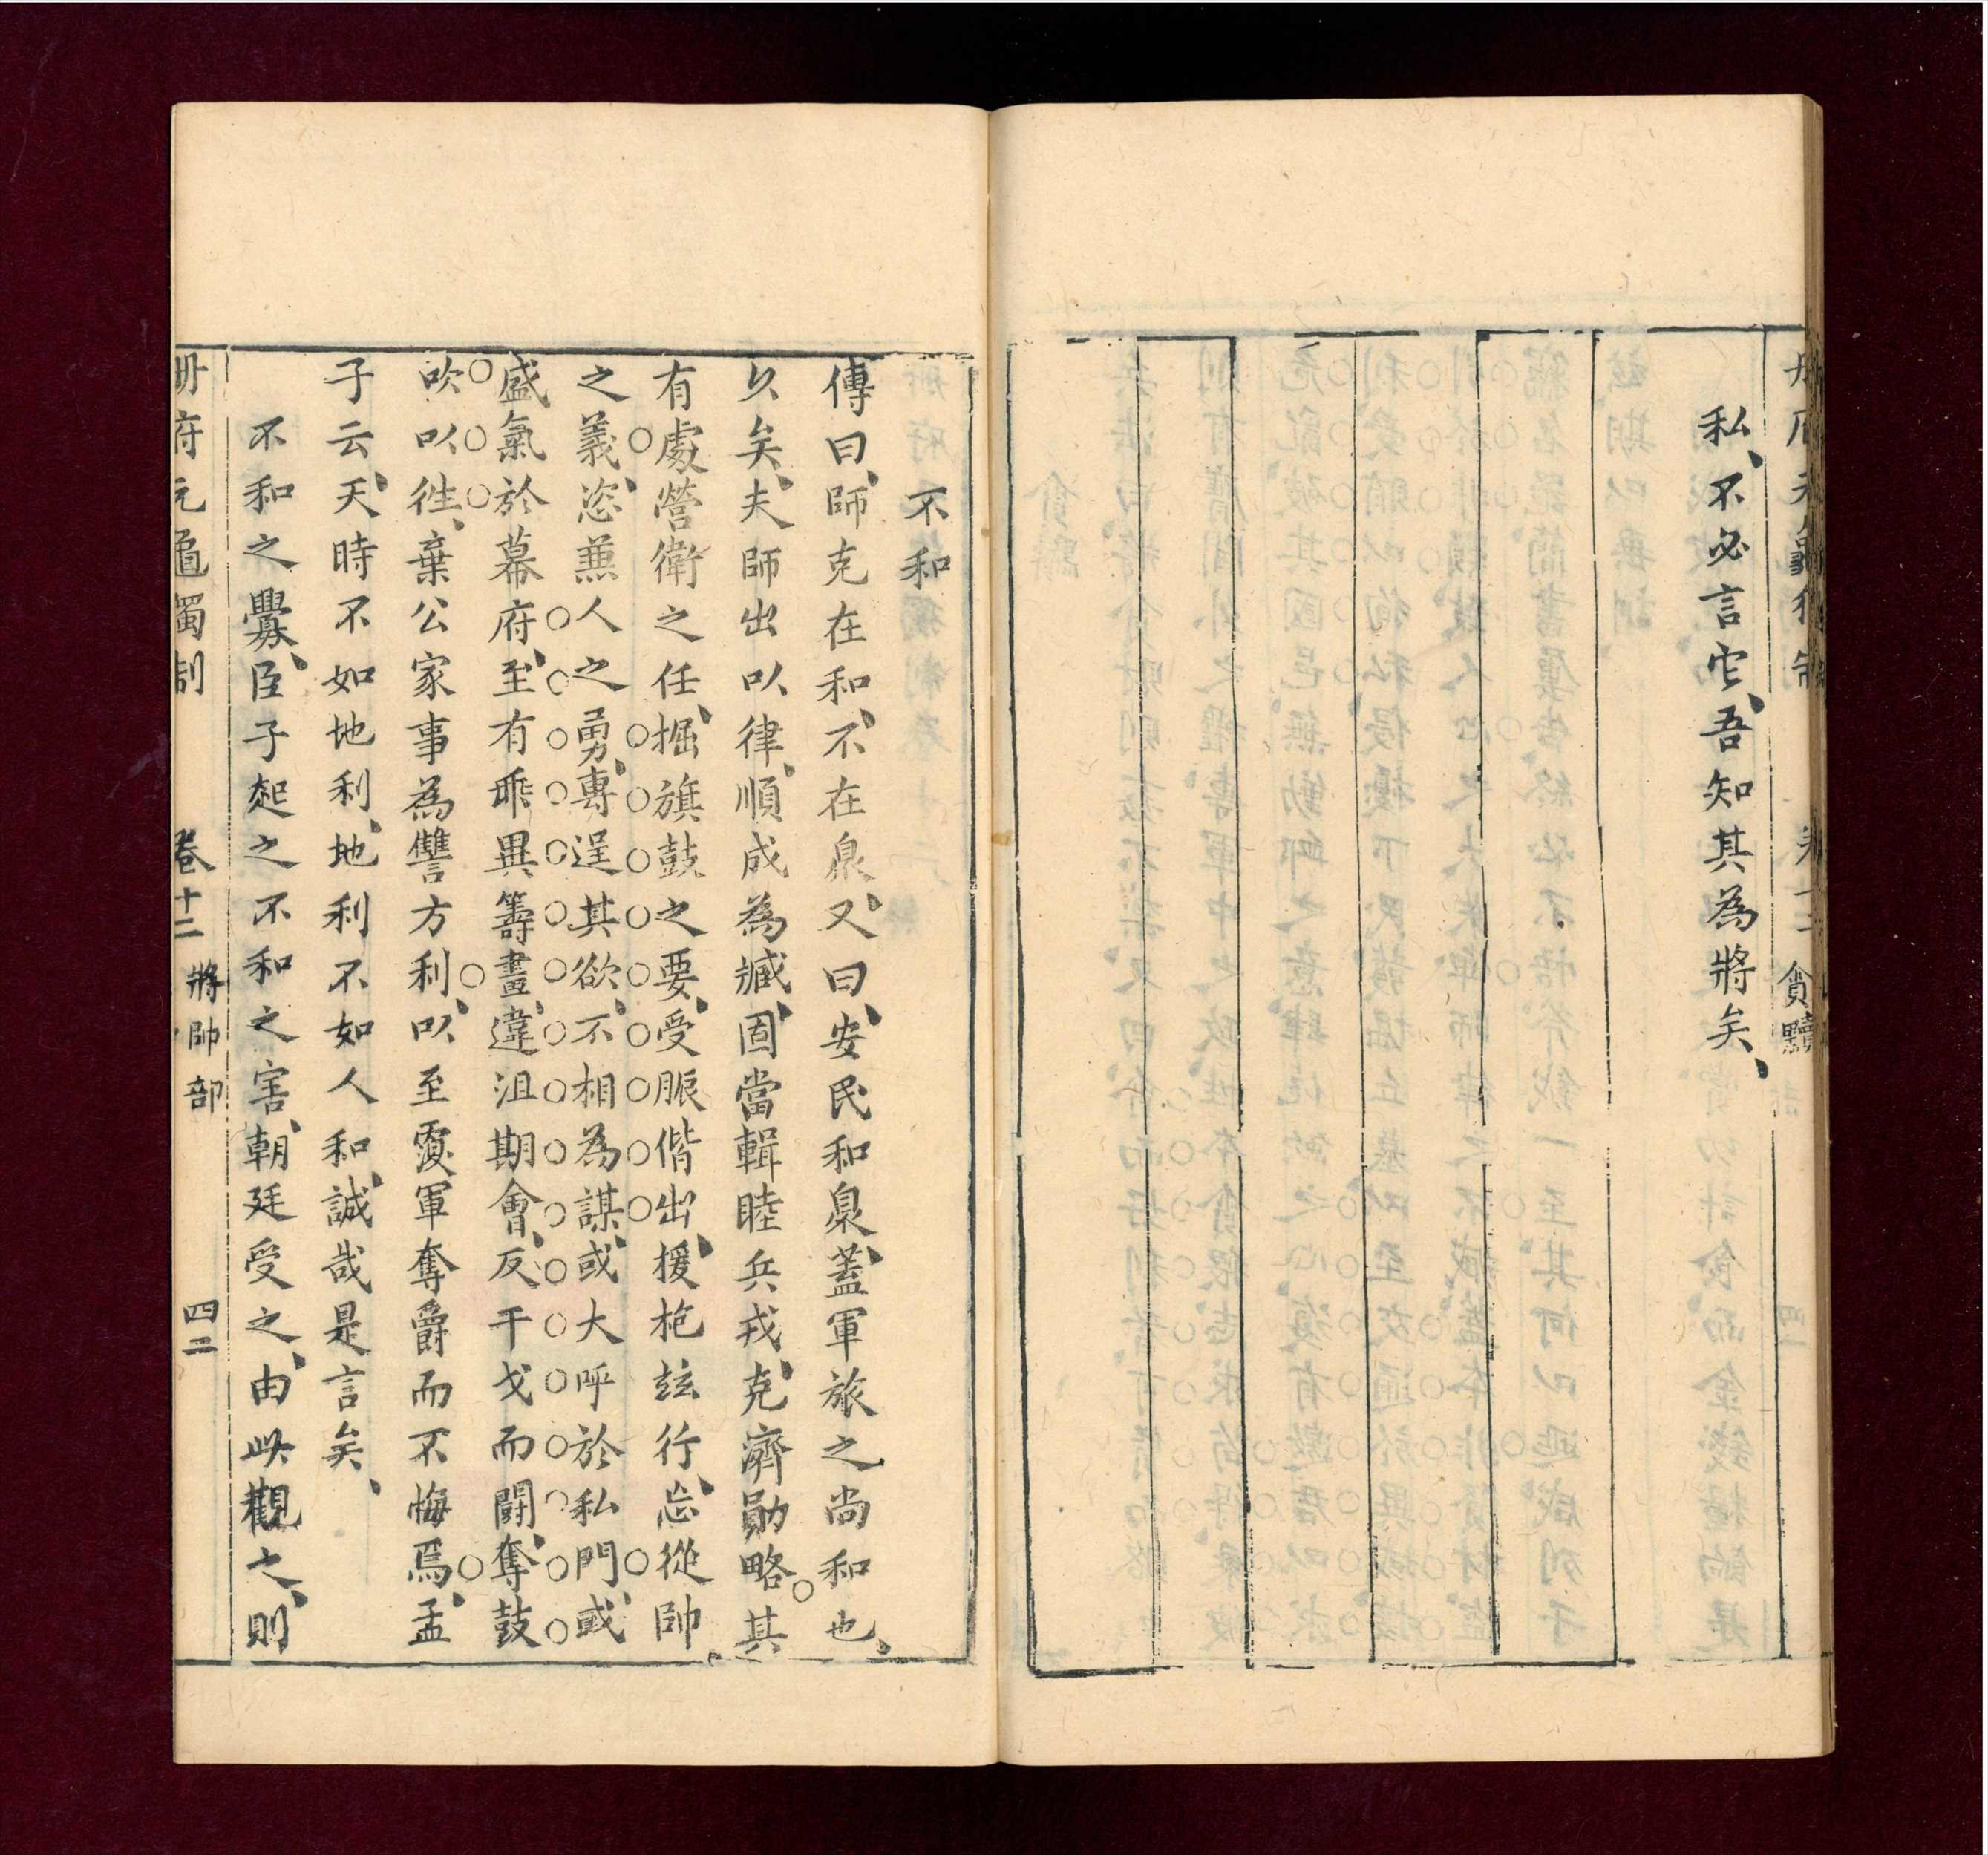 册府元龜獨制 卷十二 貪黷
私、不必言它、吾知其為將矣、
不和
傳曰、師克在和、不在衆、又曰、安民和衆、蓋軍旅之尚和也、
久矣、夫師出以律、順成為臧、固當輯睦兵戎、克濟勛略、其
有處營衛之任、掘旗鼓之要、受脤偕出、援枹竝行、忘從帥
之義、恣兼人之勇、專逞其欲、不相為謀、或大呼於私門、或
盛氣於幕府、至有乖異籌畫、違沮期會、反干戈而鬪、奪鼓
吹以徃、棄公家事為讐方利、以至覆軍奪爵而不悔焉、孟
子云、天時不如地利、地利不如人和、誠哉是言矣、
不和之釁、臣子起之、不和之害、朝廷受之、由此觀之、則
册府元龜獨制 卷十二 將帥部 四二